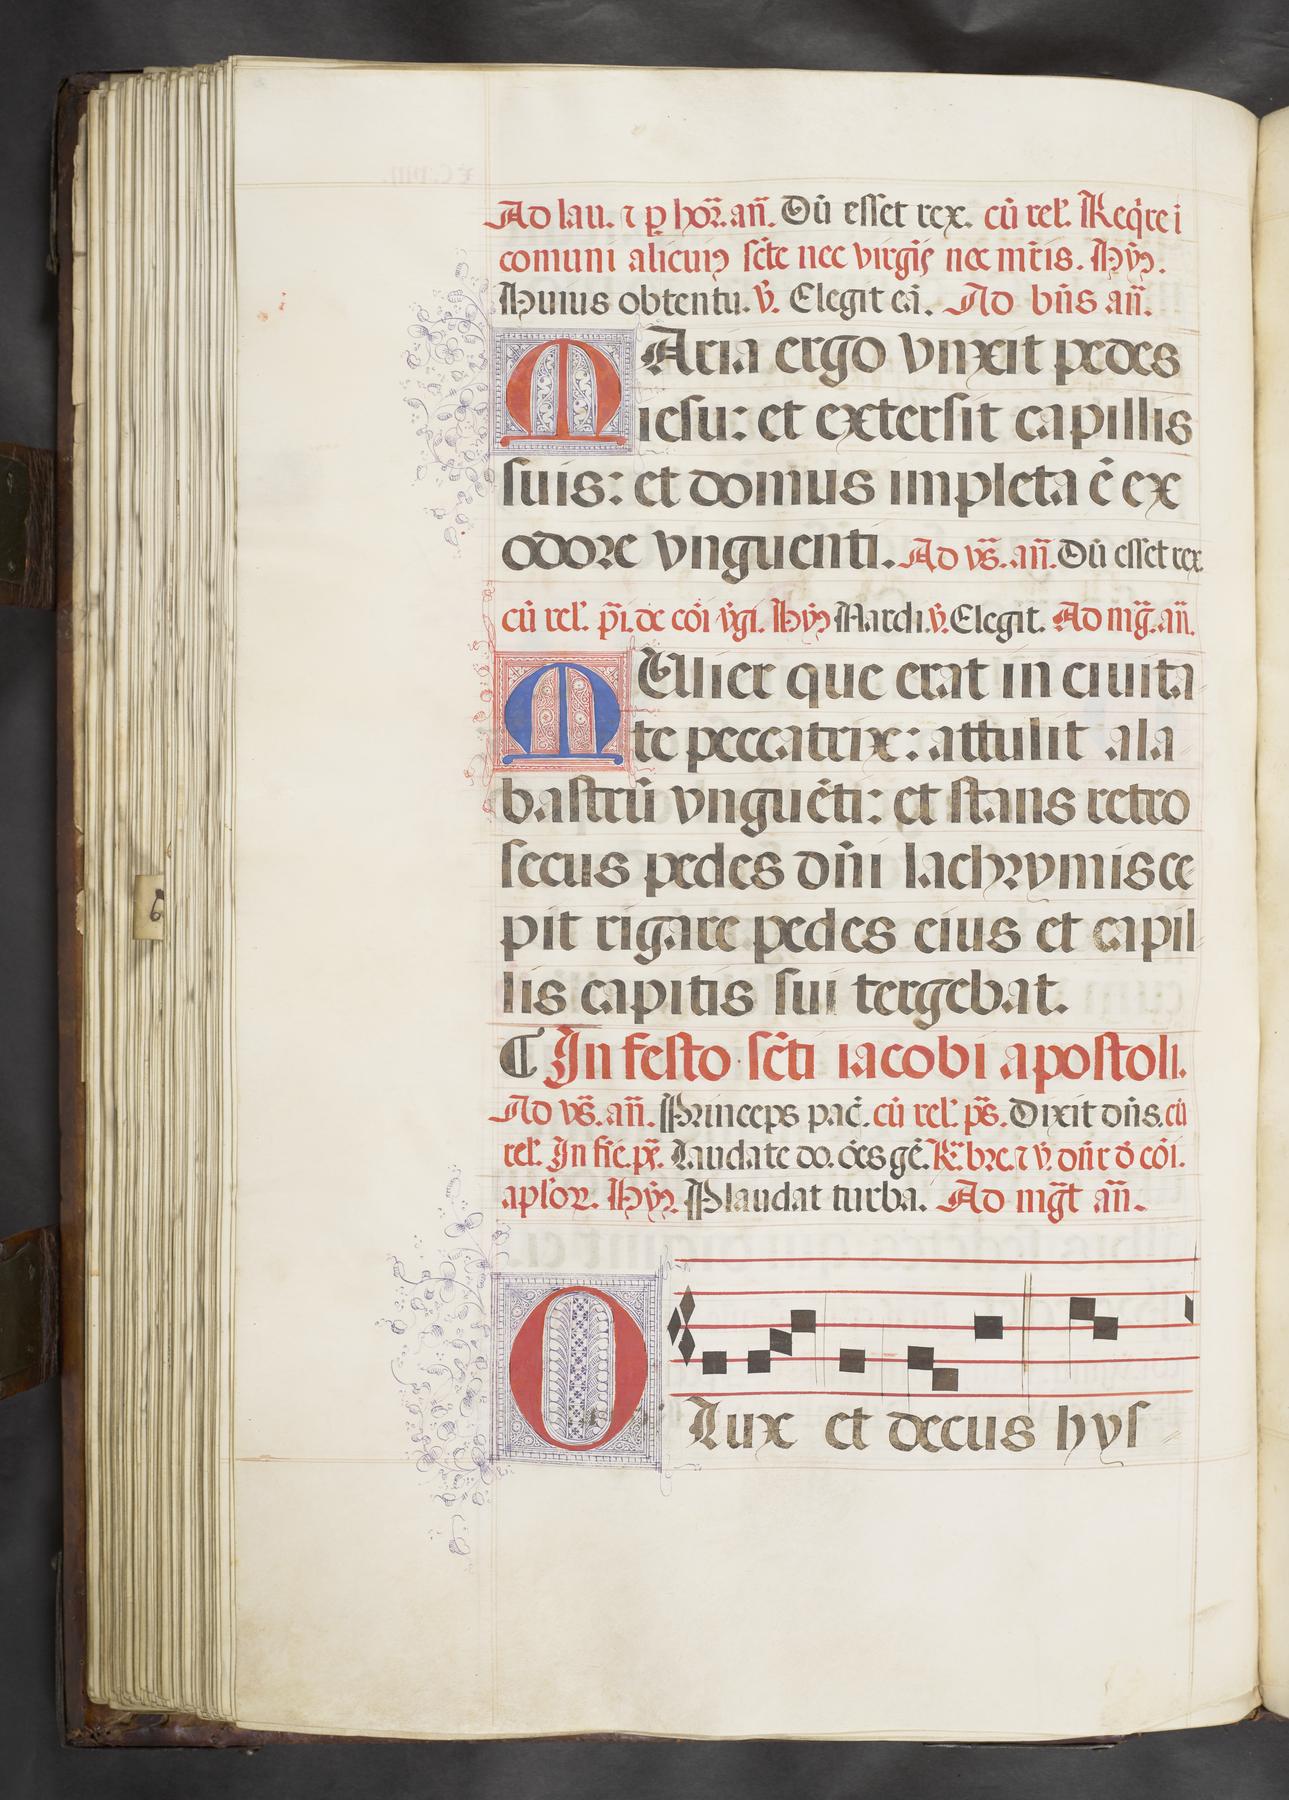 Ad lau. ⁊ p hoꝛ̃. añ. Dũ esset rex. cũ rel'. Reqͥre i
comuni alicuiꝰ scẽte nec virgĩs nec mr̃is. Hỹꝰ.
Huius obtentu. v̉. Elegit eã. Ad bñs añ.
MAria ergo vnxit pedes
iesu: et extersit capillis
suis: et domus impleta ẽ ex
odore vnguenti. Ad vs̃. añ. Dũ esset rex
cũ rel'. pĩ. de cõi v̉gi. Hỹꝰ Nardi. v̉. Elegit. Ad mg̃. añ.
MUlier que erat in ciuita
te peccatrix: attulit ala
bastrũ vnguẽti: et stans retro
secus pedes dñi lachrymis ce
pit rigare pedes eius et capil
lis capitis sui tergebat.
¶ In festo scẽti iacobi apostoli.
Ad vs̃. añ. Princeps pacẽ. cũ rel'. ps̃. Dixit dñs. cũ
rel'. In fiẽ. px̃. Laudate do. õẽs gẽ. R̃. bꝛe. ⁊ v̉. dñr d̉ cõi.
apl'oꝝ. Hỹꝰ Plaudat turba. Ad mg̃t añ.
O Lux et decus hys
6